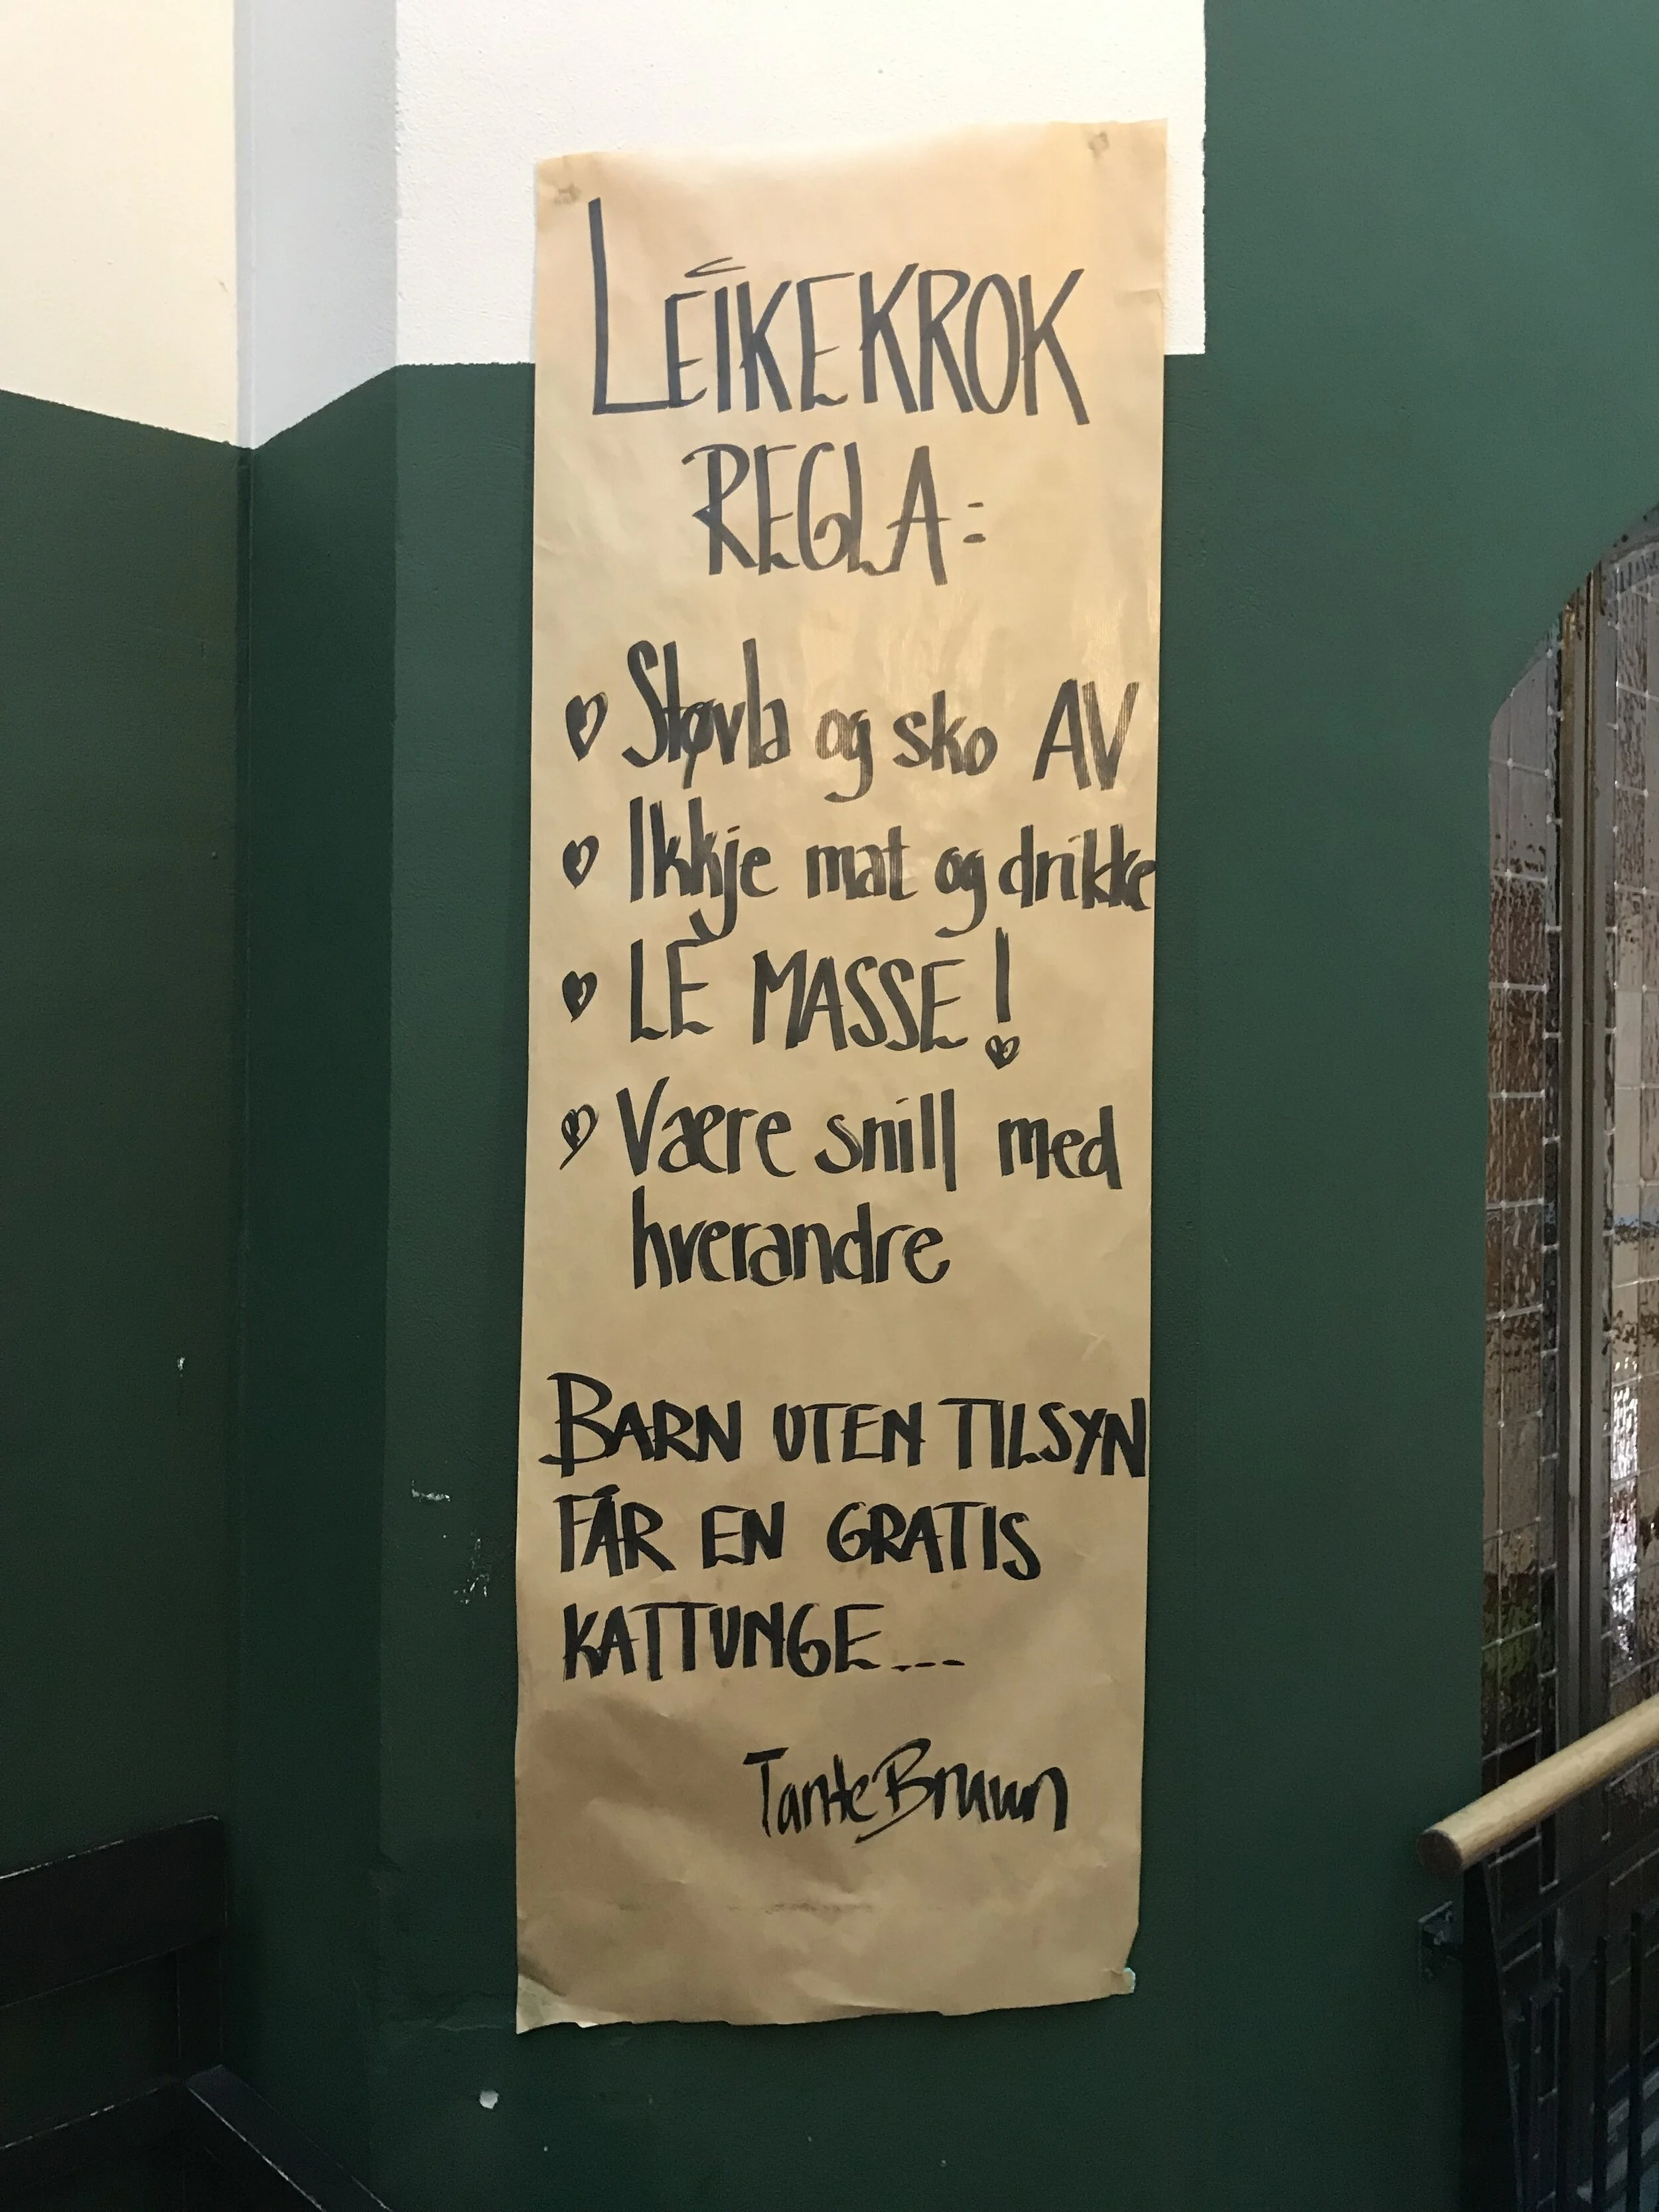 LEIKEKROK
REGLA:
Støvla og sko AV
Ikkje mat og drikke
LE MASSE!
Være snill med
hverandre
BARN UTEN TILSYN
FÅR EN GRATIS
KATTUNGE...
Tante Bruun